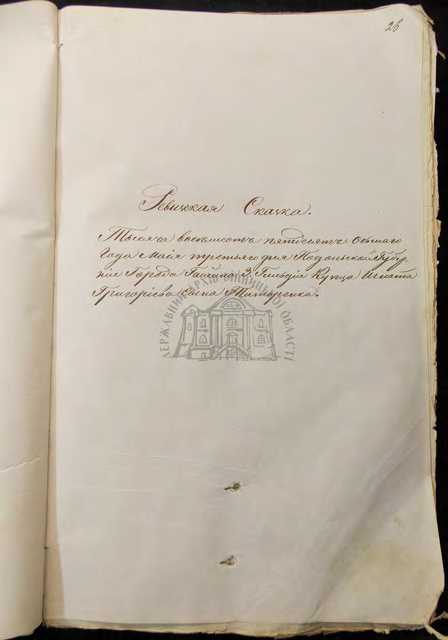 28
Ревизская Сказка.
Тысяча восемьсотъ пятдесятъ осьмаго
Года Маія третьяго дня Подольской Губер-
ніи Города Гайсина 3. Гильдіи Купца Игната
Григорьева сына Татаренка.
ДЕРЖАВНИЙ АРХІВ ВІННИЦЬКОЇ ОБЛАСТІ